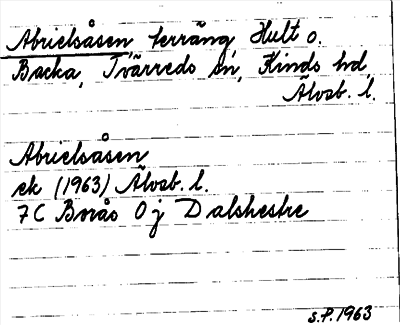 Abrielsåsen, terräng, Hult o.
Backa, Tvärreds sn, Kinds hd
Älvsb. l.
Abrielsåsen
ek (1963) Älvsb. l.
7C Borås 0 j Dalshestre
S.P. 1963